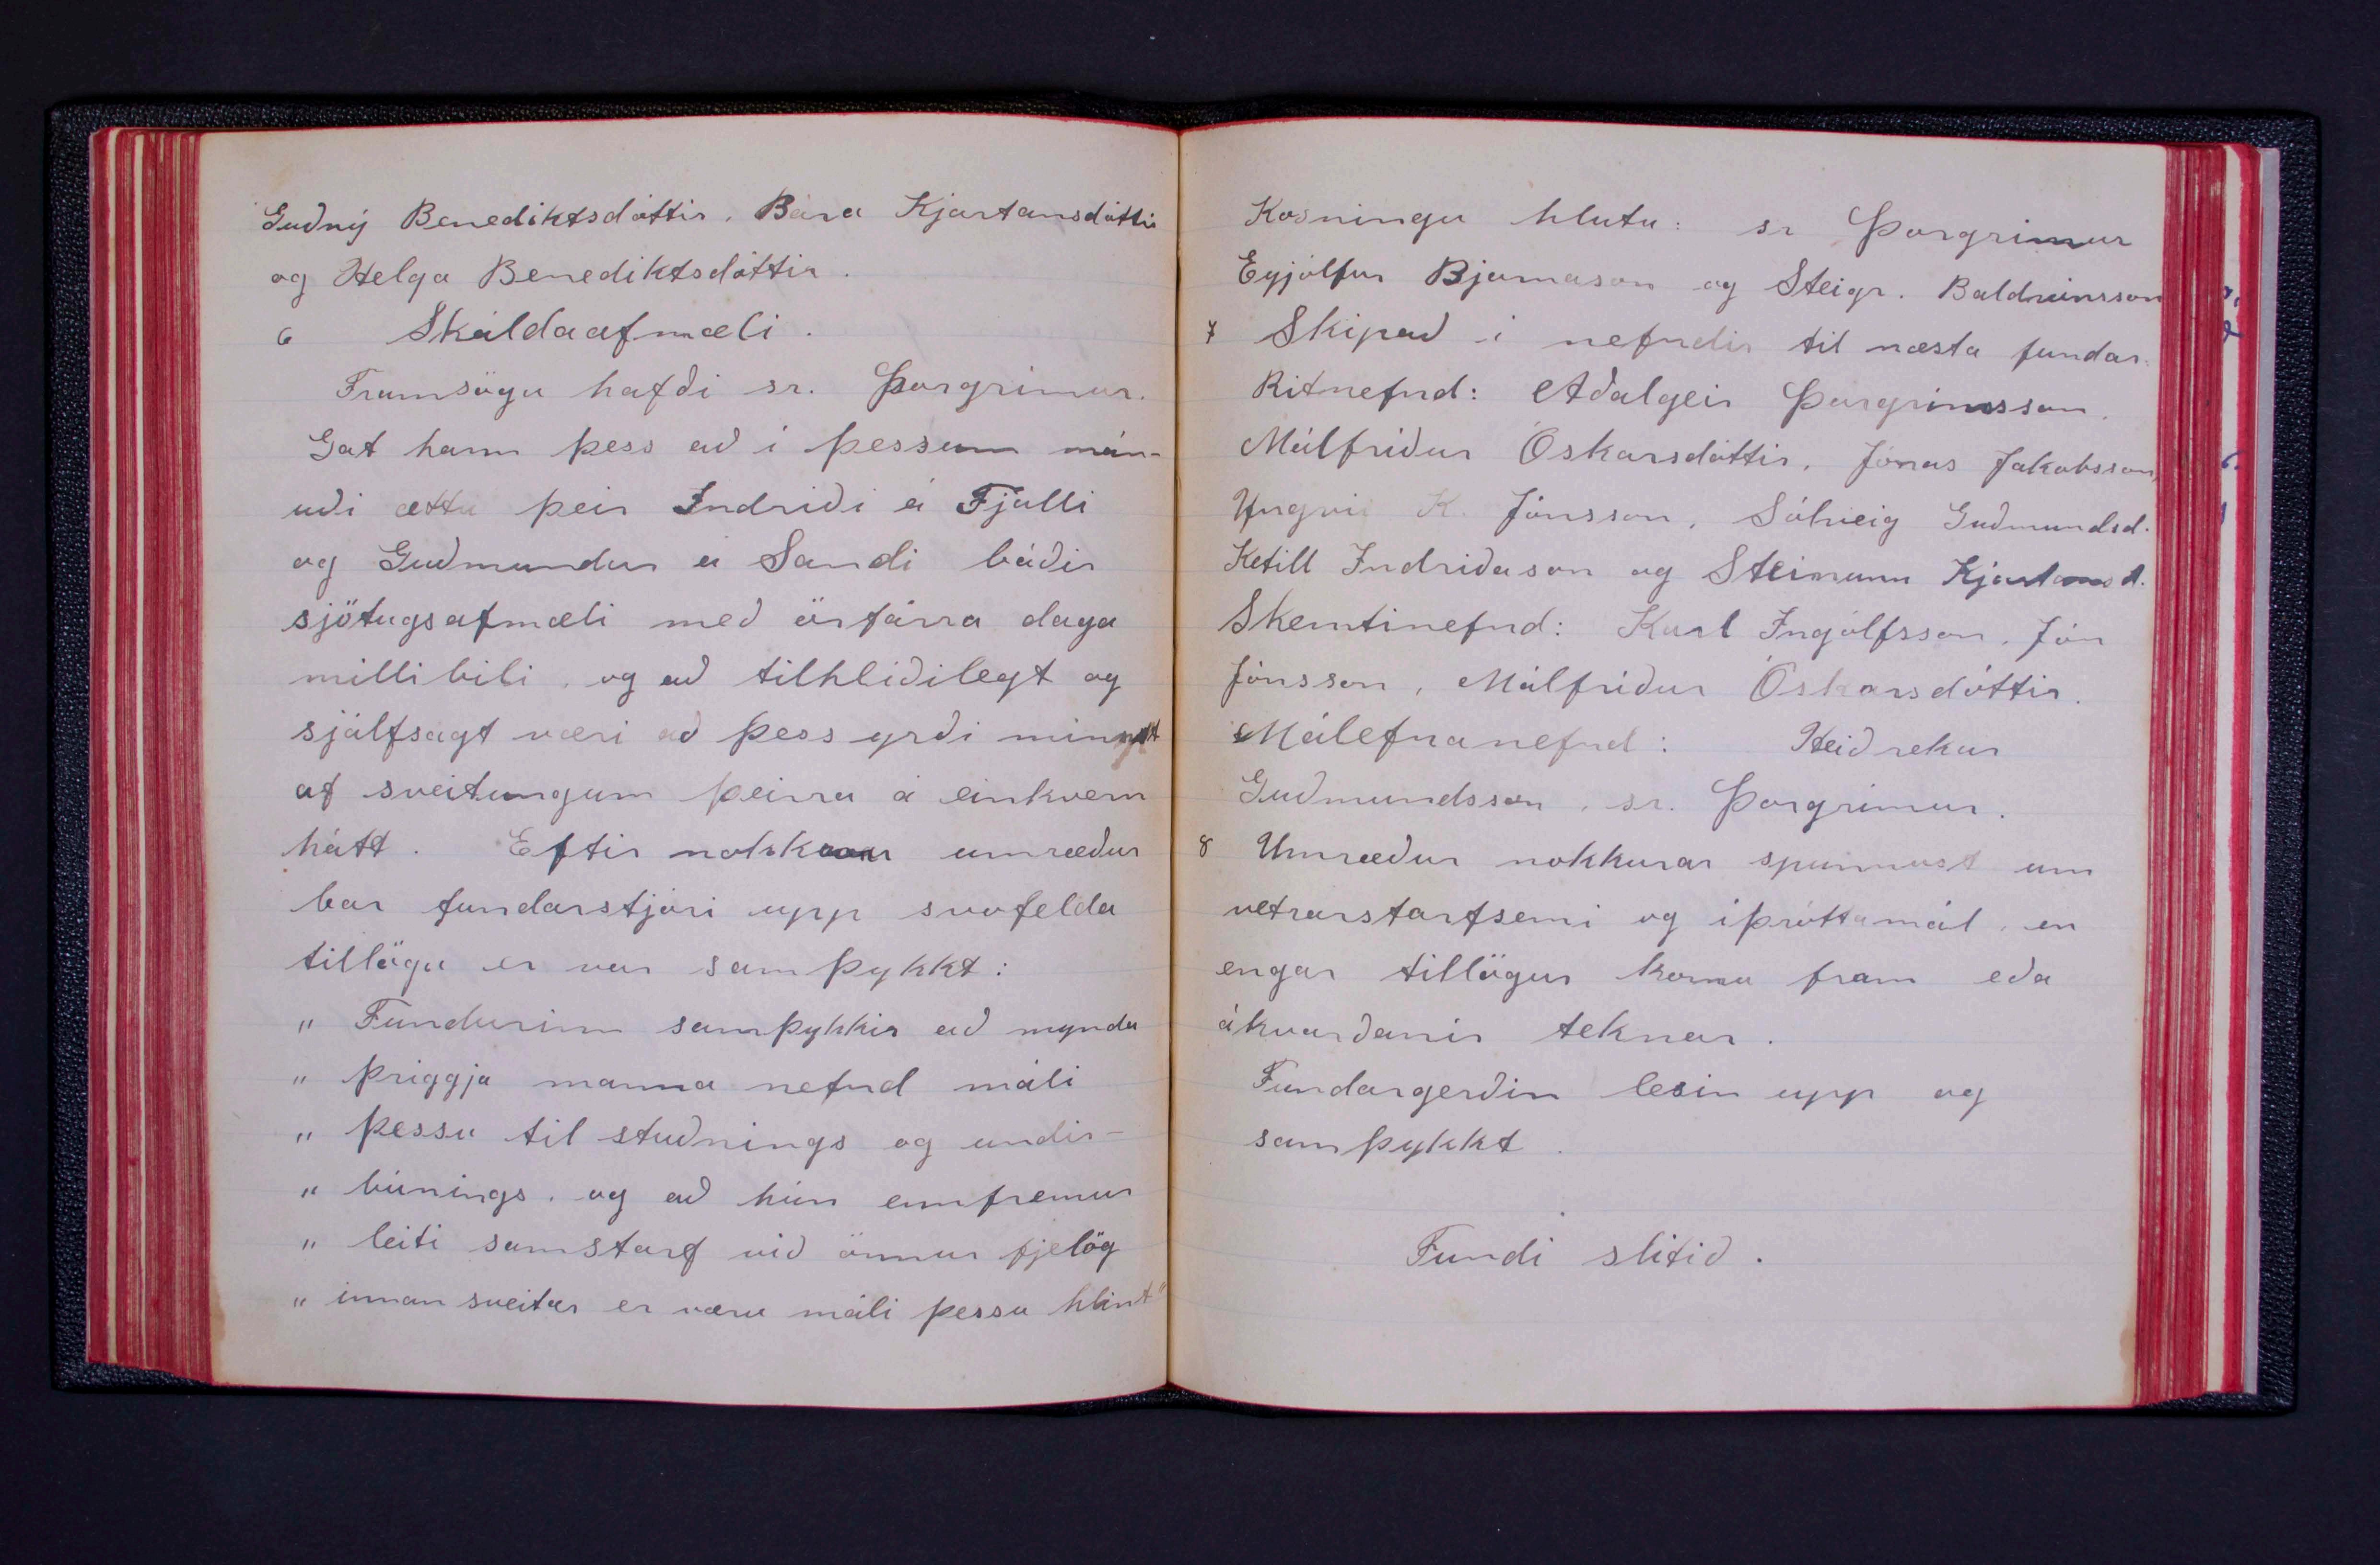 Guðný Benediktsdóttir, Bára Kjartansdóttir
og Helga Benediktsdóttir.
6 Skáldaafmæli.
Framsögu hafði sr. Þorgrímur.
Gat hann þess að í þessum mán-
uði ættu þeir Indriði á Fjalli
og Guðmundur á Sandi báðir
sjötugsafmæli með örfárra daga
millibili, og að tilhliðilegt og
sjálfsagt væri að þess yrði minnst
af sveitungum þeirra á einkvern
hátt. Eftir nokkrar umræður
bar fundarstjóri upp svofelda
tillögu er var samþykkt:
„ Fundurinn samþykkir að mynda
„ þriggja manna nefnd máli
„ þessu til stuðnings og undir-
„ búnings, og að hún ennfremur
„ leiti samstarf við önnur fjelög
„ innan sveitar er væru máli þessu hlint"
Kosningu hlutu: sr Þorgrímur
Eyjólfur Bjarnason og Steigr. Baldvinsson
7 Skipað í nefndir til næsta fundar.
Ritnefnd: Aðalgeir Þorgrímsson,
Málfríður Óskarsdóttir, Jónas Jakobsson,
Yngvi K. Jónsson, Sólveig Guðmundsd.
Ketill Indriðason og Steinunn Kjartansd.
Skemtinefnd: Karl Ingólfsson, Jón
Jónsson, Málfríður Óskarsdóttir.
Málefnanefnd: Heiðrekur
Guðmundsson, sr. Þorgrímur.
8 Umræður nokkurar spunnust um
vetrarstarfsemi og íþróttamál, en
engar tillögur komu fram eða
ákvarðanir teknar.
Fundargerðin lesin upp og
samþykkt.
Fundi slitið.